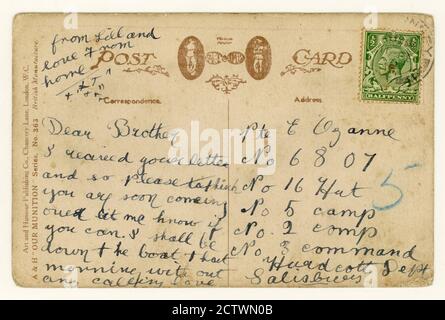 from Lill and
love from
home
POST CARD
Correspondence.
Address
Dear Brother
I recived your letter
and so please to think
you are soon coming
oued let me know if
you can. I shall be
down the boat that
morning with out
any calling love
Pte E Ozanne
No 6807
No 16 Hut
No 5 camp
No 2 comp
No 3 command
Hurdcott Dept
Salisbury
5
Art and Humour Publishing Co., Chancery Lane, London, W.C.
A & H "OUR MUNITION" Series, No. 363 British Manufacture.
alamy
Image ID: 2CTWN0B
www.alamy.com